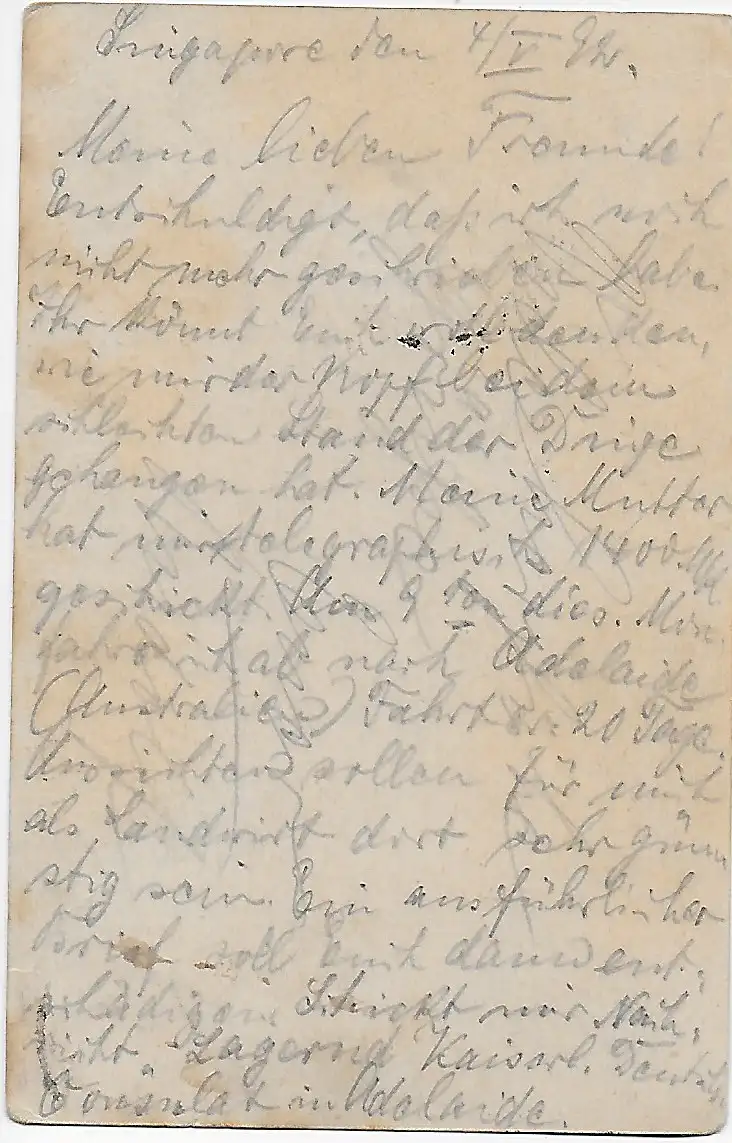 Singapore den 4/V
Meine lieben Freunde!
Entschuldigt, daß ich noch
nicht mehr geschrieben habe.
Ihr könnt Euch wohl denken,
wie mir der Kopf bei dem
schlechten Stand der Dinge
gehangen hat. Meine Mutter
hat mir telegraphisch 1400 M
geschickt. Am 9 ten dies. Mon.
fahre ich ab nach Adelaide
(Australien) Fahrt 20 Tage.
Aussichten sollen für mich
als Landwirt dort sehr gün
stig sein. Ein ausführlicher
Brief soll Euch dann ent-
schädigen. Schickt mir Nach-
richt. Lagernd Kaiserl. Deutsch.
Consulat in Adelaide.